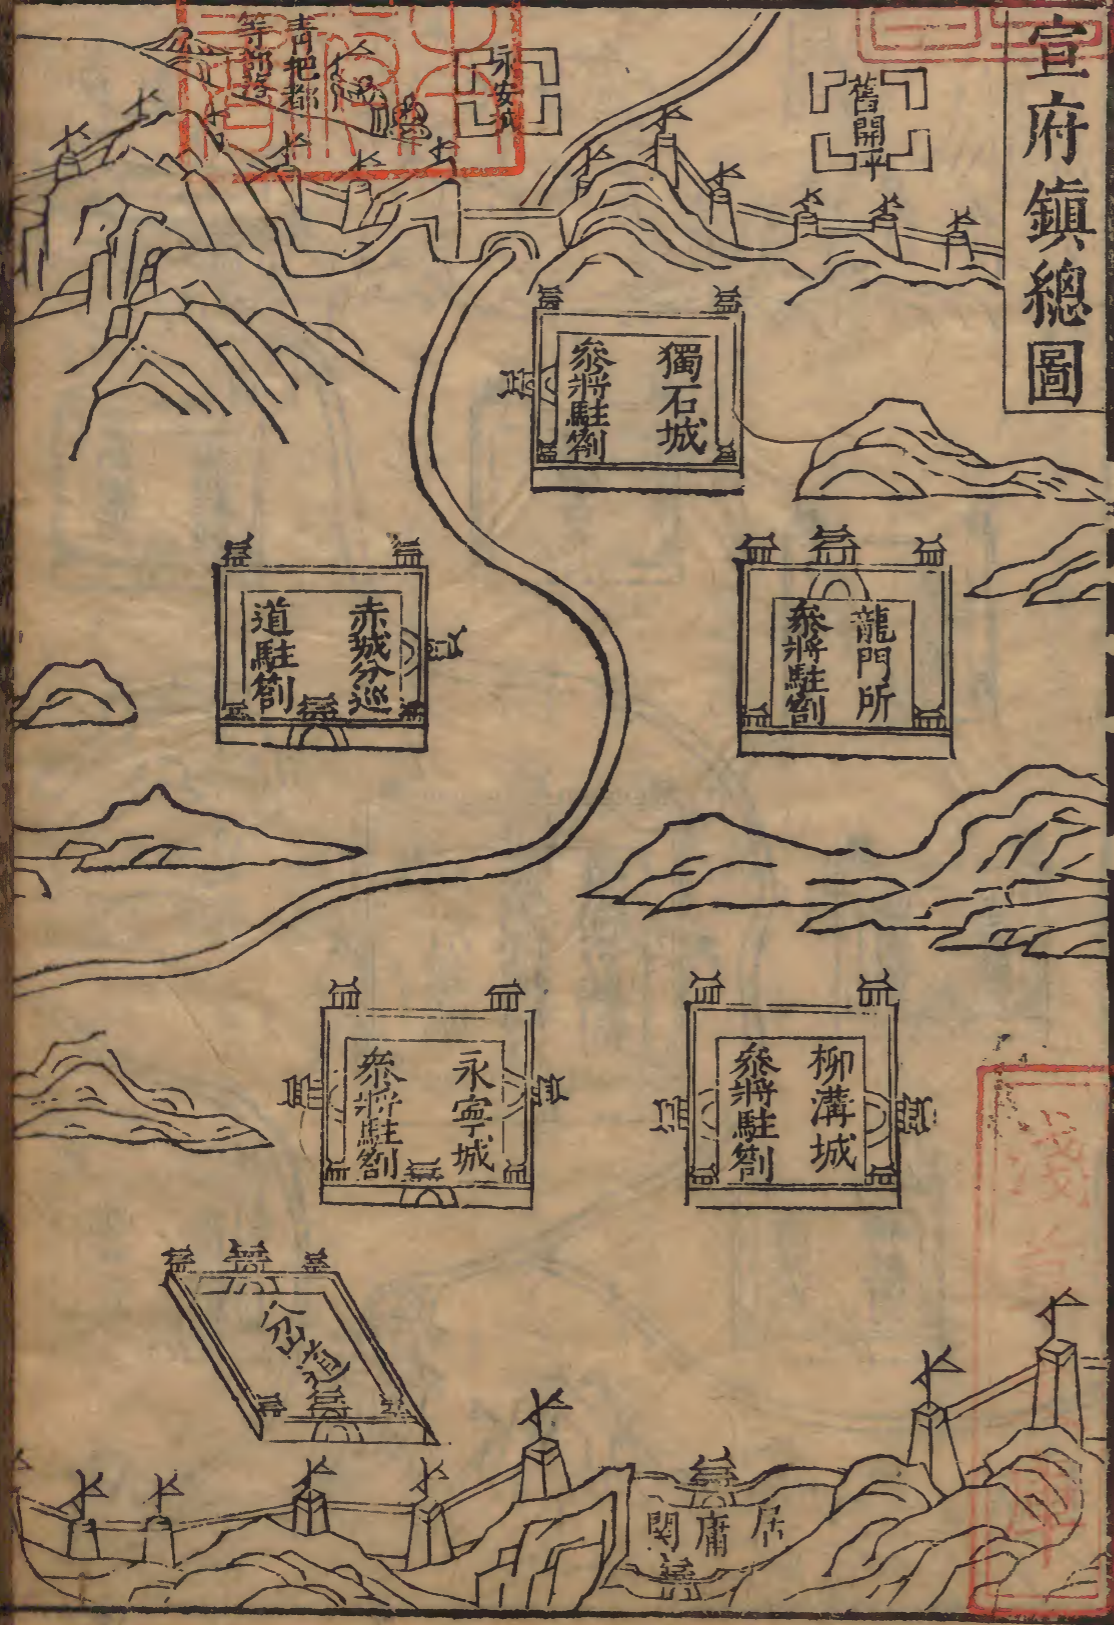 宣府鎮總圖
舊開平
永安城
青把都
等部落
獨石城
叅將駐劄
龍門所
叅將駐劄
赤城分巡
道駐劄
柳溝城
叅將駐劄
永寧城
叅將駐劄
岔道
居庸関